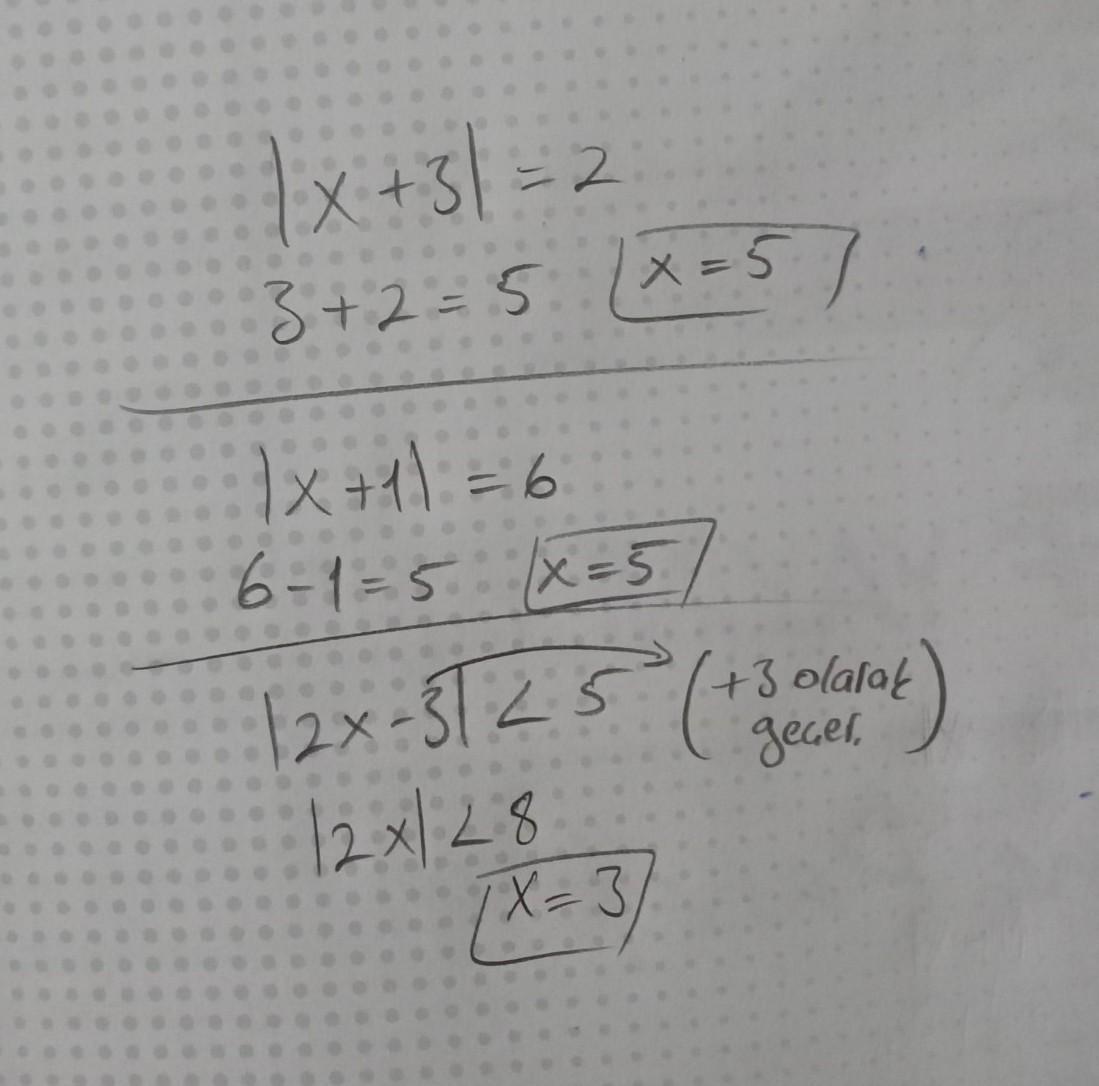 |x+3| = 2
3+2=5 x=5
|x+1| = 6
6-1=5 x=5
|2x-3| < 5 (+3 olarak
geçer.)
|2x| < 8
x=3